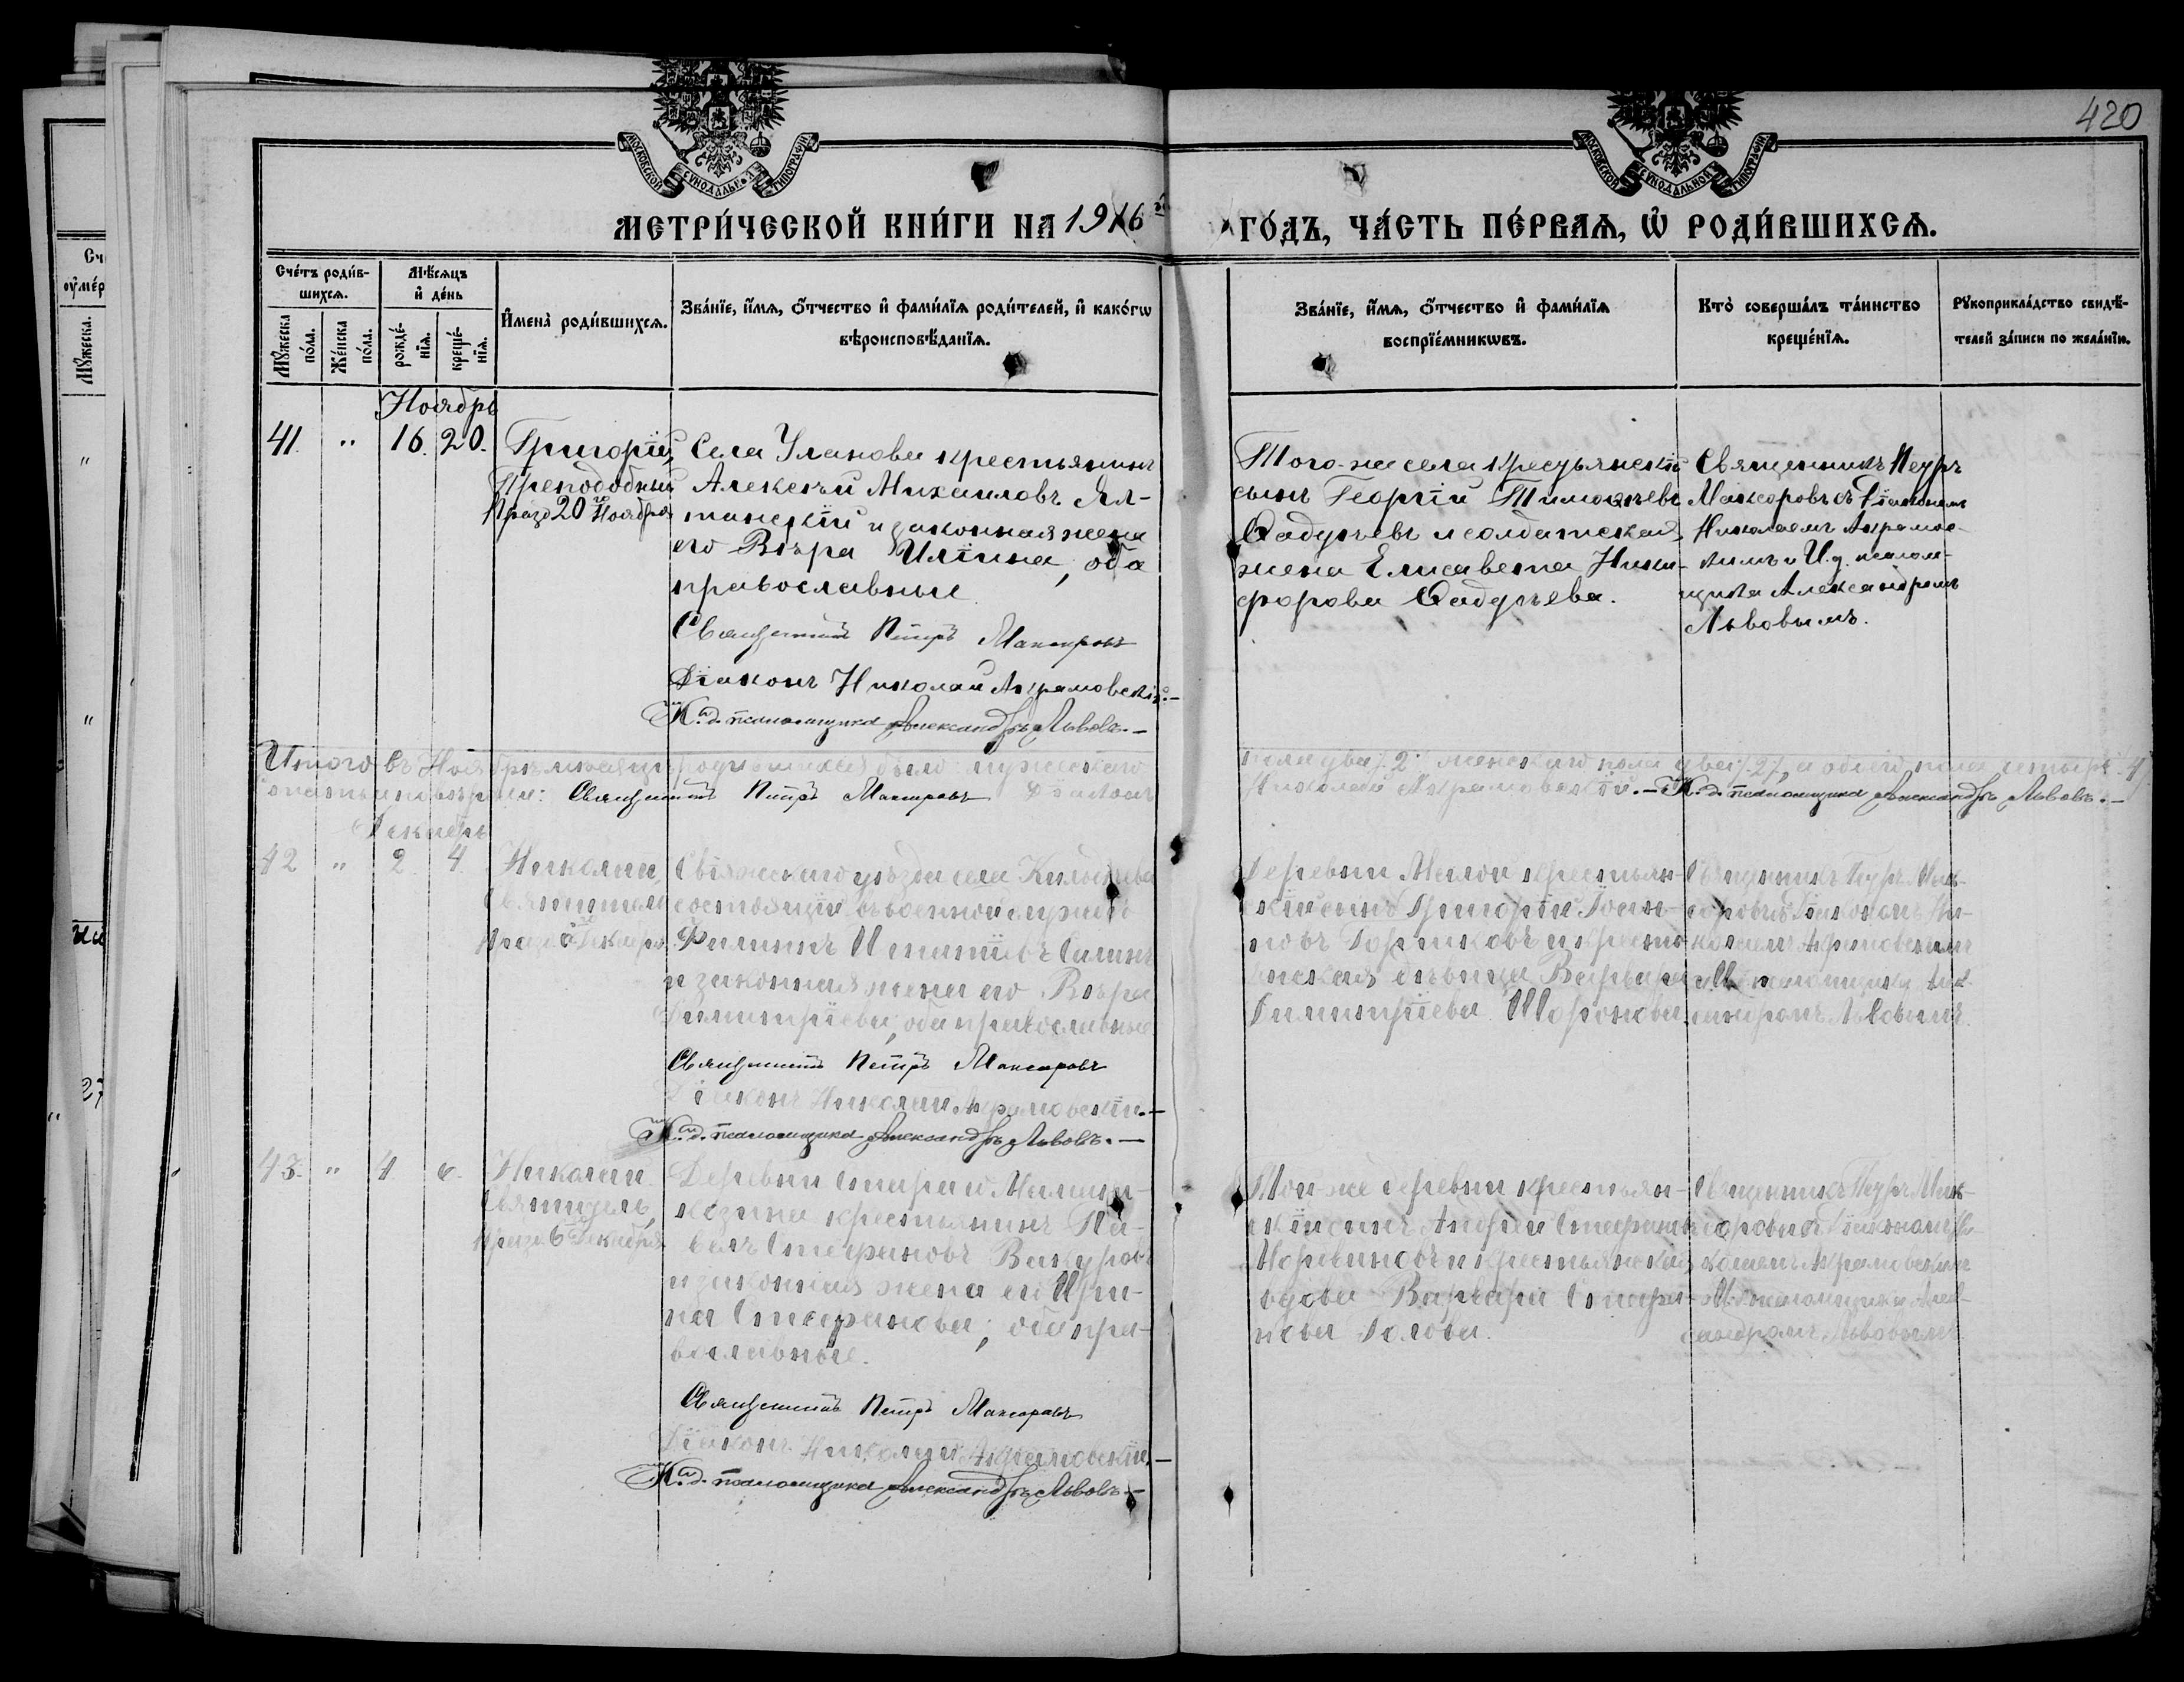 420
МОСКОВСКОЙ СѴНОДАЛЬНОЙ ТИПОГРАФІИ
МОСКОВСКОЙ СѴНОДАЛЬНОЙ ТИПОГРАФІИ
МЕТРИ́ЧЕСКОЙ КНИ́ГИ НА 1916 ГО́ДЪ, ЧА́СТЬ ПЕ́РВАѦ, Ѡ РОДИ́ВШИХСѦ.
Сче́тъ роди́в-
шихсѧ.
Мꙋ́жеска по́ла.
Же́нска по́ла.
Мѣ́сѧцъ
и҆ де́нь
рожде́-
нїѧ.
креще́-
нїѧ.
И҆мена̀ роди́вшихсѧ.
Зва́нїе, и҆́мѧ, ѻ҆́тчество и҆ фами́лїѧ роди́телей, и҆ како́гѡ
вѣроисповѣ́данїѧ.
Зва́нїе, и҆́мѧ, ѻ҆́тчество и҆ фами́лїѧ
воспрїе́мникѡвъ.
Кто̀ соверша́лъ та́инство
креще́нїѧ.
Рꙋкоприкла́дство свидѣ́-
телей за́писи по жела́нїю.
Ноябрь
41. " 16. 20.
Григорій,
Преподобный
Празд 20 Ноября
Села Уланова крестьянинъ
Алексѣй Михаиловъ Ял-
танскій и законная жена
его Вѣра Иліина, оба
православные
Священникъ Петръ Максоровъ
Діаконъ Николай Акрамовскій.—
И. д. псаломщика Александръ Львовъ.—
Того-же села крестьянскій
сынъ Георгій Тимоѳеевъ
Садуевъ и солдатская
жена Елисавета Ники-
форова Садуева.
Священникъ Петръ
Максоровъ съ Діакономъ
Николаемъ Акрамов-
скимъ и И.д. псалом-
щика Александромъ
Львовымъ.
Итого въ Ноябрѣ мѣсяцѣ родившихся было мужескаго
пола два /.2./ женскаго пола два /.2./, а обоего пола четыре /.4/
Священникъ Петръ Максоровъ Діаконъ
Николай Акрамовскій.— И. д. псаломщика Александръ Львовъ.—
Декабрь
42 " 2 4
Николай,
Святитель
Празд 6 Декабря
Свіяжскаго уѣзда села
состоящій въ военной службѣ
Филиппъ Игнатіевъ
и законная жена его Вѣра
Димитріева, оба православные
Священникъ Петръ Максоровъ
Діаконъ Николай Акрамовскій.—
И. д. псаломщика Александръ Львовъ.—
Деревни крестьян-
скій сынъ Григорій Іоан-
новъ Горшковъ и кресть-
янская дѣвица Варвара
Димитріева
Священникъ Петръ Мак-
соровъ съ Діакономъ Ни-
колаемъ Акрамовскимъ
и И.д. псаломщика Алек-
сандромъ Львовымъ.
43. " 4. 6.
Николай
Святитель,
Празд 6 Декабря
Деревни Стараго
крестьянинъ Па-
велъ Стефановъ
и законная жена его Ири-
на Стефанова; оба пра-
вославные.
Священникъ Петръ Максоровъ
Діаконъ Николай Акрамовскій.—
И. д. псаломщика Александръ Львовъ.—
Той-же деревни крестьян-
скій сынъ Андрей Стефановъ
и крестьянская
вдова Варвара Стефа-
нова
Священникъ Петръ Мак-
соровъ съ Діакономъ Ни-
колаемъ Акрамовскимъ
и И.д. псаломщика Алек-
сандромъ Львовымъ